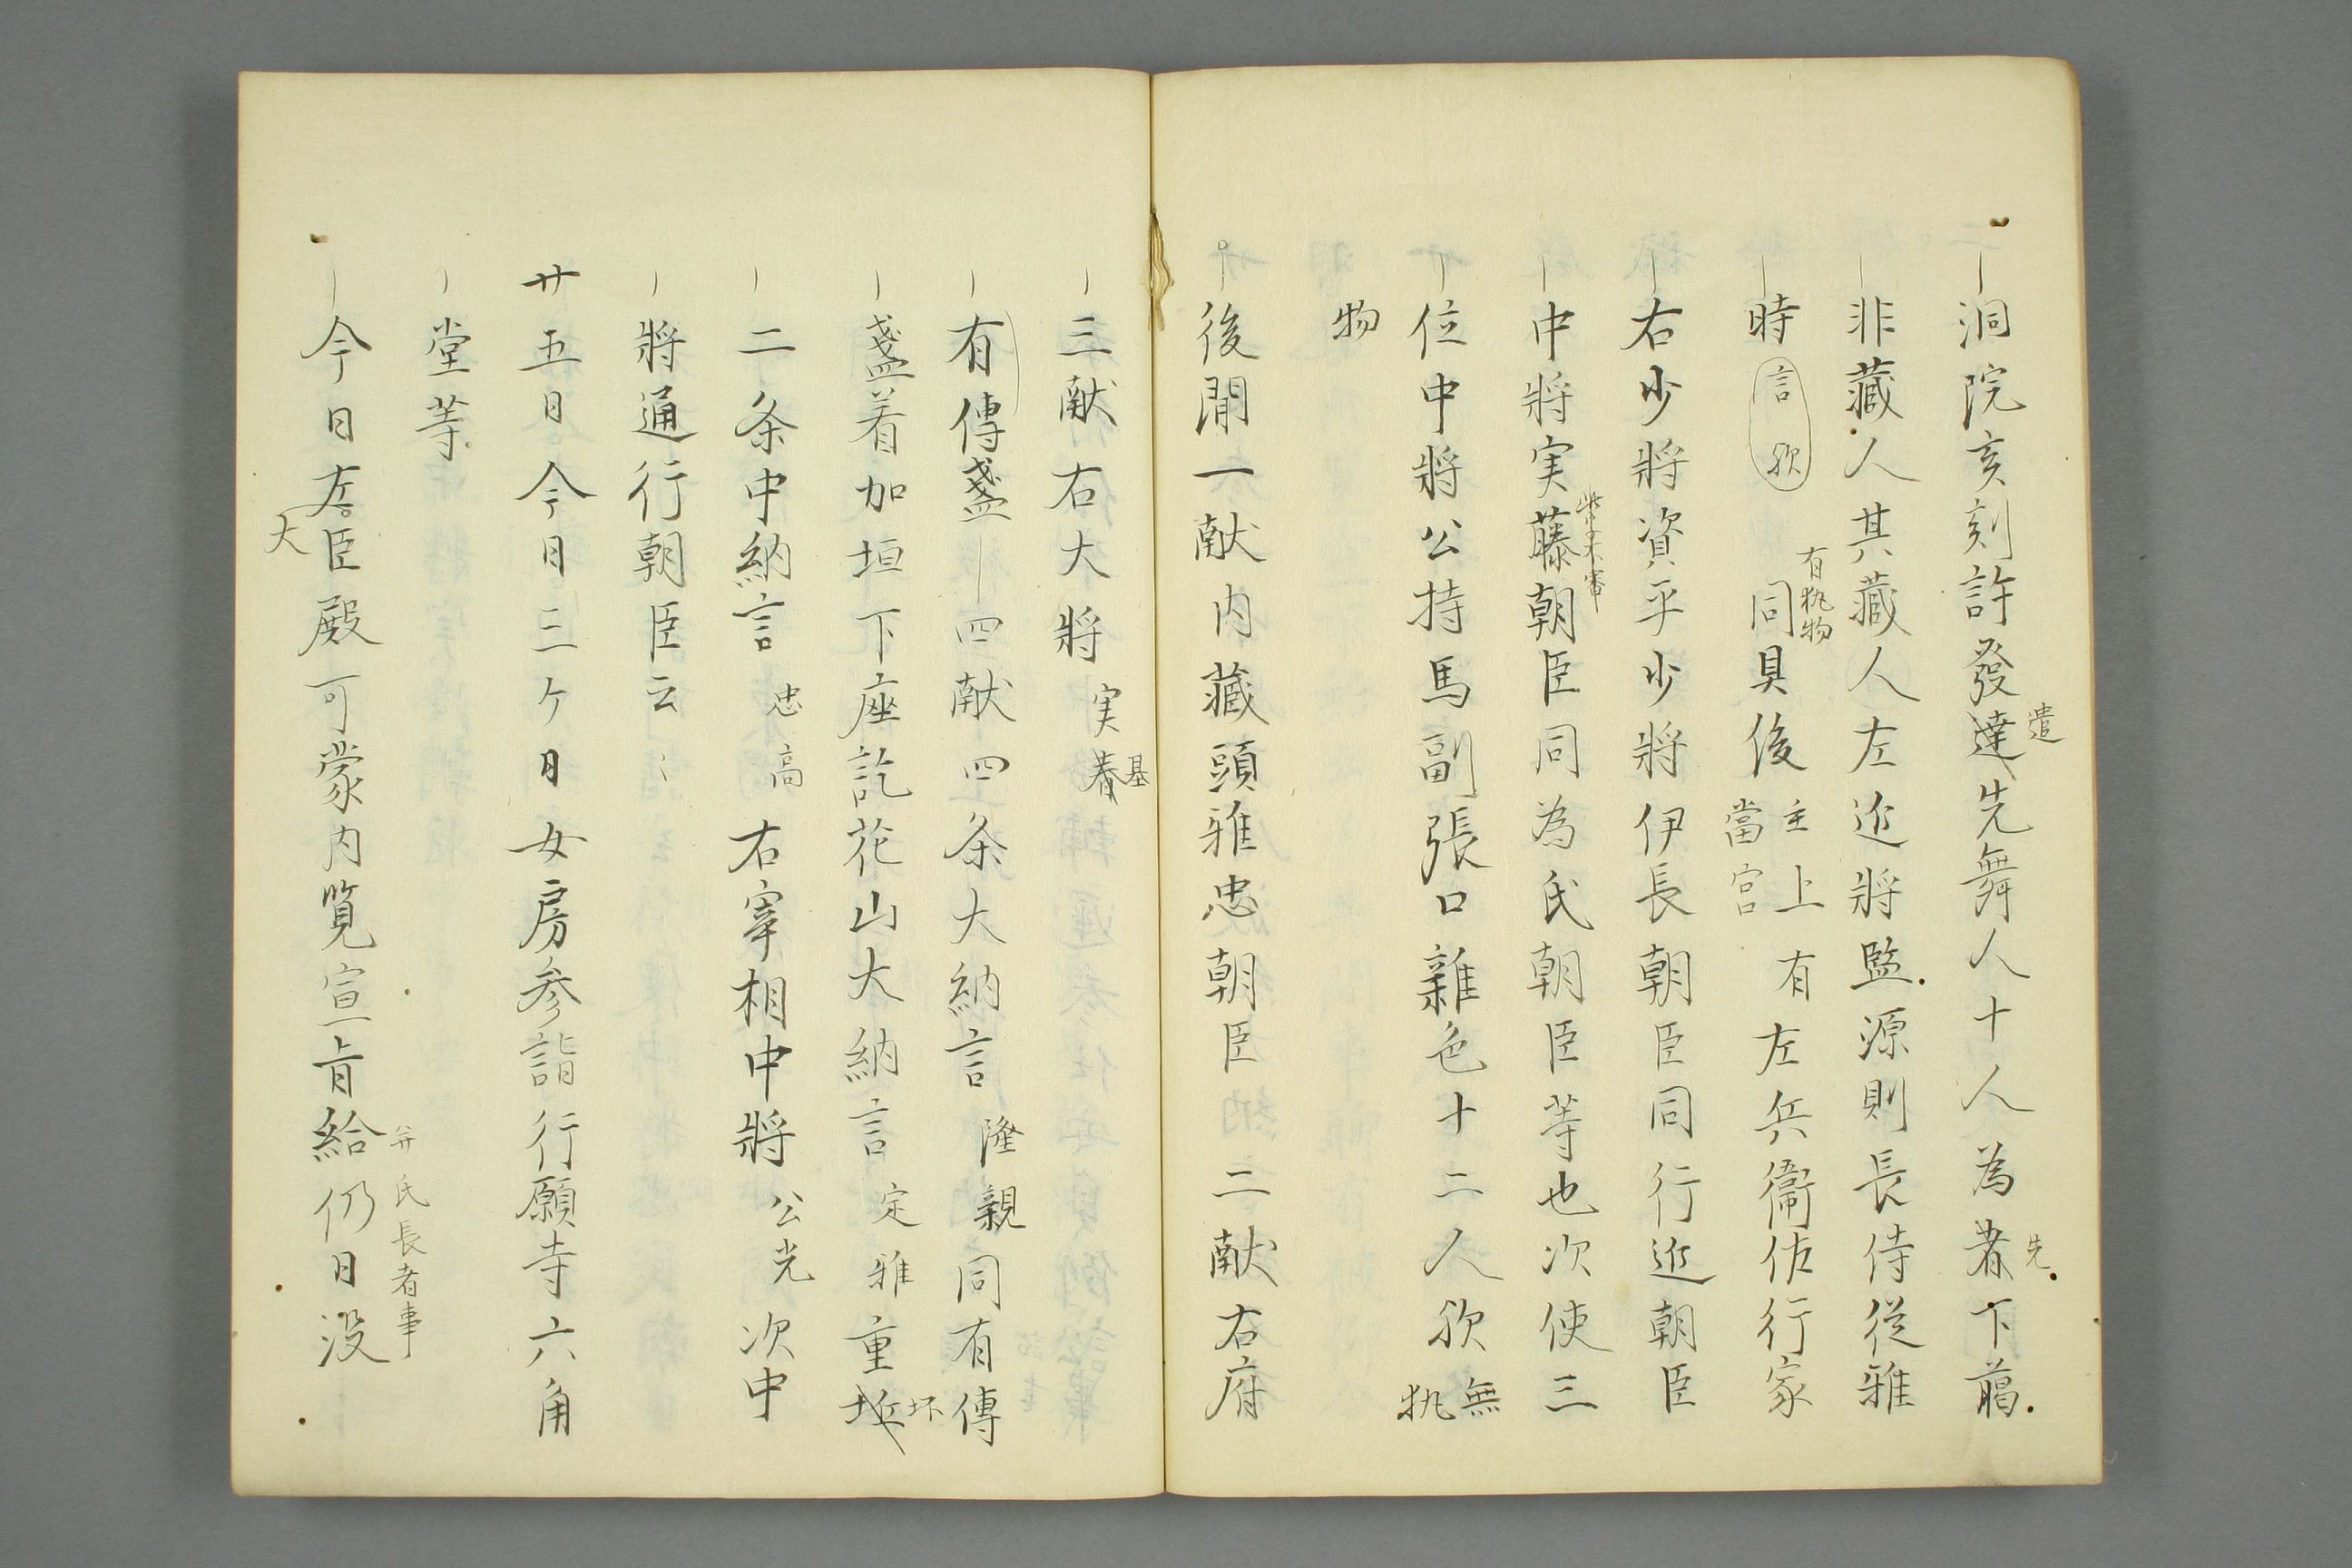 洞院亥刻許發達先舞人十人為者下﨟
遣
先
非藏人其藏人左近將監源則長侍從雅
時言欤同具後主上當宮有左兵衛佐行家
有執物
右少將資平少將伊長朝臣同行近朝臣
中將実藤朝臣同為氏朝臣等也次使三
位中將公持馬副張口雜色十二人欤無執
物
後聞一献内藏頭雅忠朝臣二献右府
三献右大將実春
基
有傳盞四献四条大納言隆親同有傳
盞着加垣下座訖花山大納言定雅重坏
二条中納言忠高右宰相中將公光次中
將通行朝臣云〻
廿五日今日三ヶ日女房参詣行願寺六角
堂等
今日左臣殿可蒙内覧宣旨給仍日没
大
并氏長者事